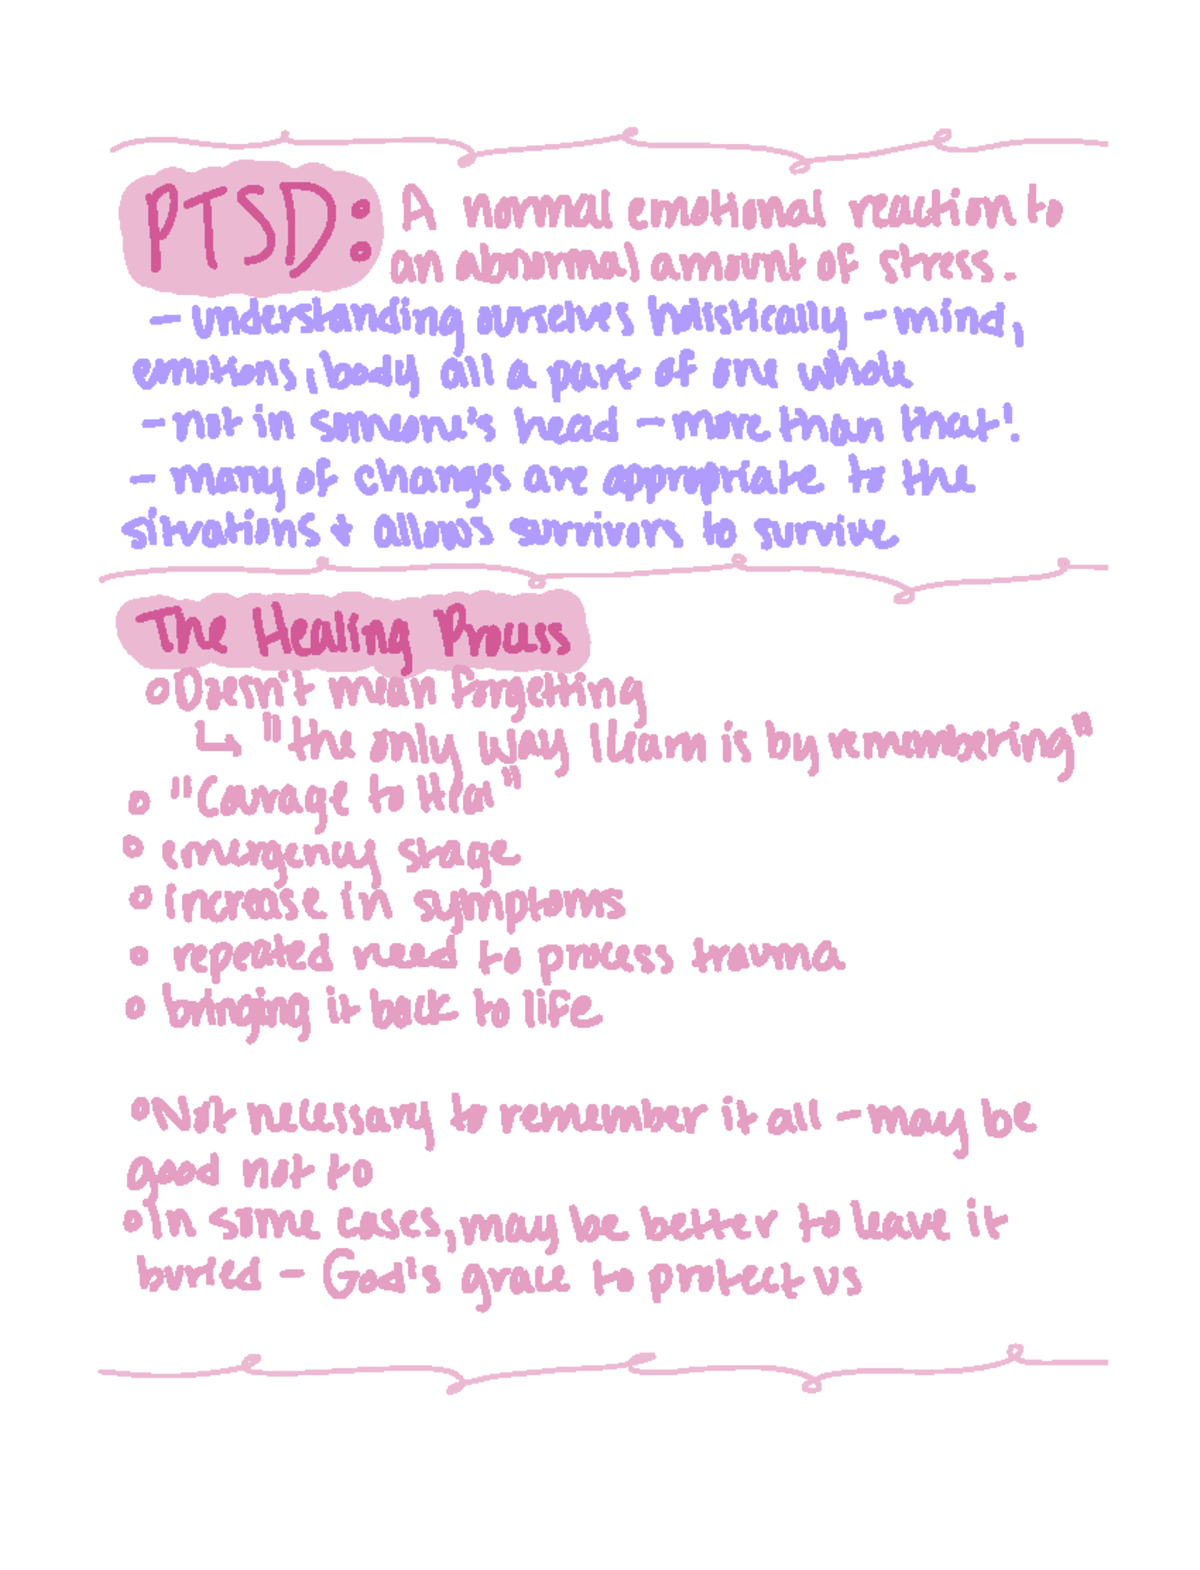 PTSD: A normal emotional reaction to
an abnormal amount of stress.
- understanding ourselves holistically - mind,
emotions, body all a part of one whole
- not in someone's head - more than that!
- many of changes are appropriate to the
situations + allows survivors to survive
The Healing Process
o Doesn't mean forgetting
↳ "the only way I learn is by remembering"
o "Courage to Heal"
o emergency stage
o increase in symptoms
o repeated need to process trauma
o bringing it back to life
o Not necessary to remember it all - may be
good not to
o In some cases, may be better to leave it
buried - God's grace to protect us